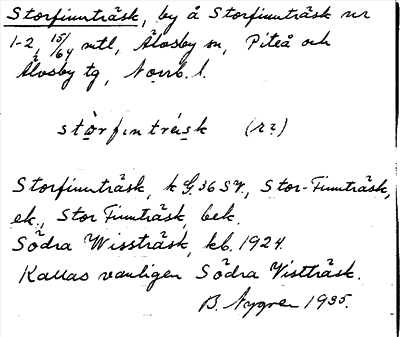 Storfinnträsk, by å Storfinnträsk nr
1-2, 15/64 mtl, Älvsby sn, Piteå och
Älvsby tg, Norrb. l.
stòrfıntrásk (rz)
Storfinnträsk, k G. 36 SV., Stor-Finnträsk,
ek., Stor Finnträsk, bek.
Södra Wissträsk, kb. 1924.
Kallas vanligen Södra Vistträsk.
B. Nygren 1935.